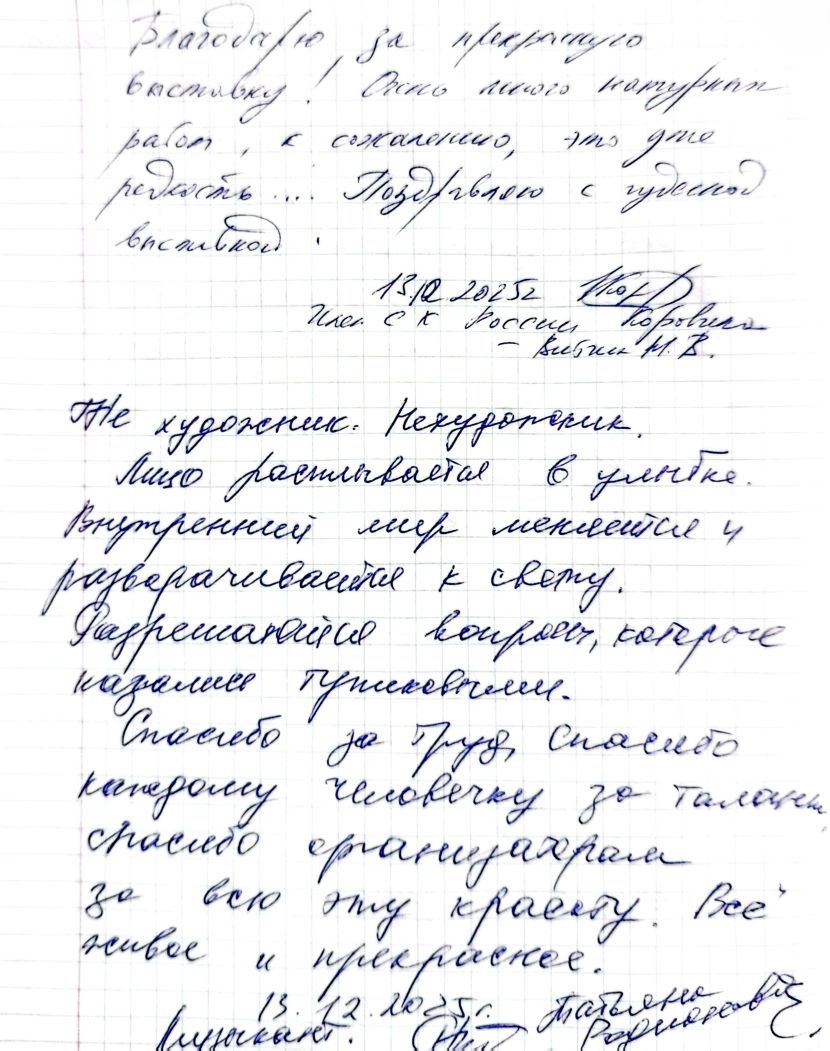 Благодарю за прекрасную
выставку! Очень много натурных
работ, к сожалению, это уже
редкость.... Поздравляю с чудесной
выставкой.
2025г
Член СХ России Коровина
- М. В.
Не художник. Нехудожник.
Лицо расплывается в улыбке.
Внутренний мир меняется и
разворачивается к свету.
Разрешаются вопросы, которые
казались тупиковыми.
Спасибо за труд, спасибо
каждому человечку за талант,
спасибо организаторам
за всю эту красоту. Всё
живое и прекрасное.
13.12.2025г. Татьяна
Музыкант.